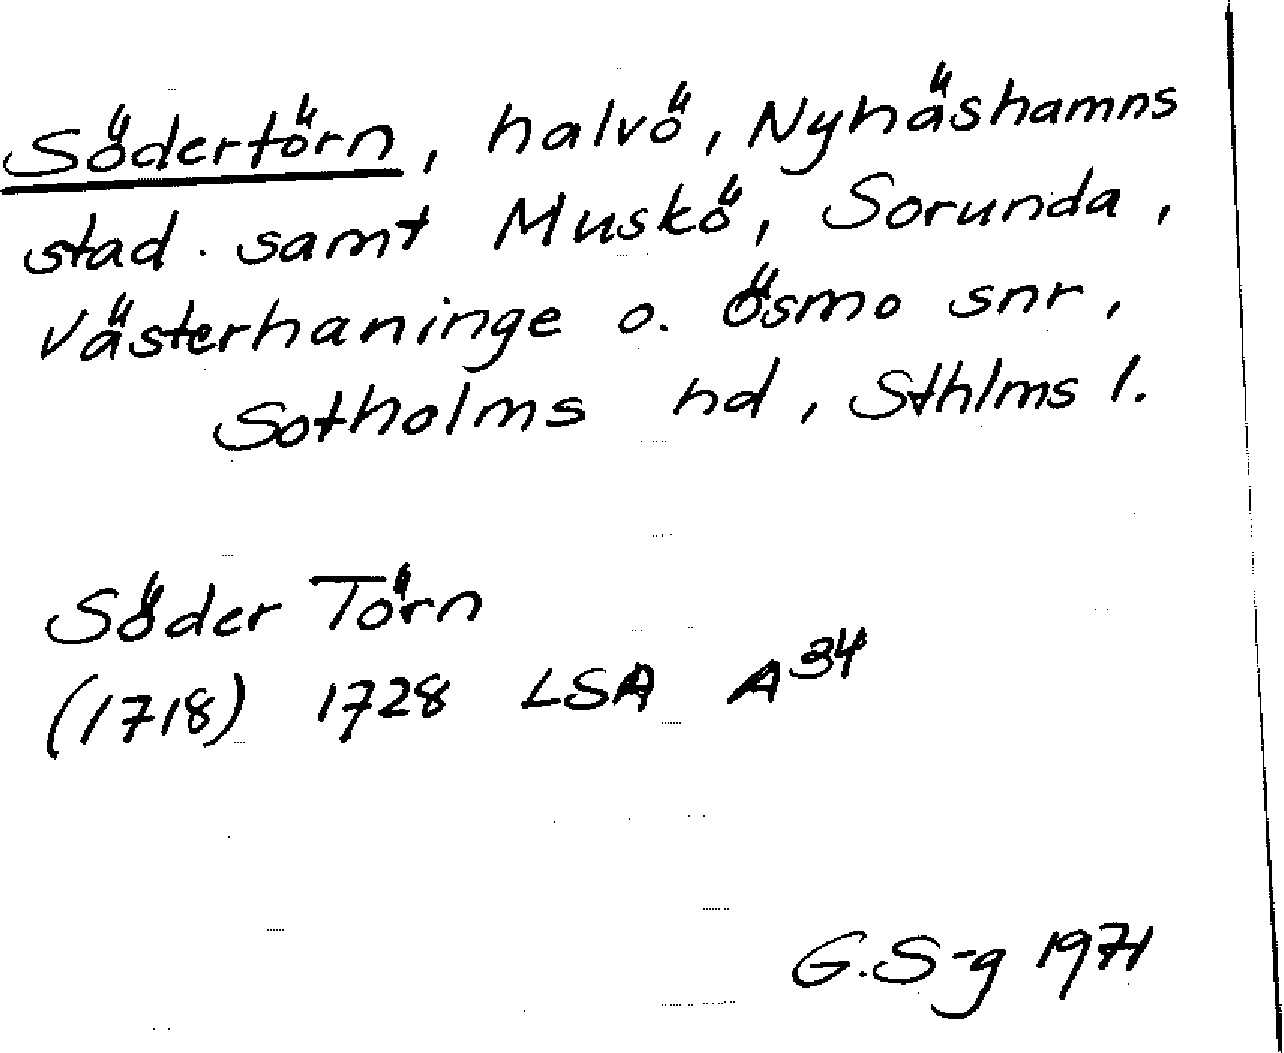 Södertörn, halvö, Nynäshamns
stad. samt Muskö, Sorunda,
Västerhaninge o. Ösmo snr,
Sotholms hd, Sthlms l.
Söder Törn
(1718) 1728 LSA A34
G.S-g 1971